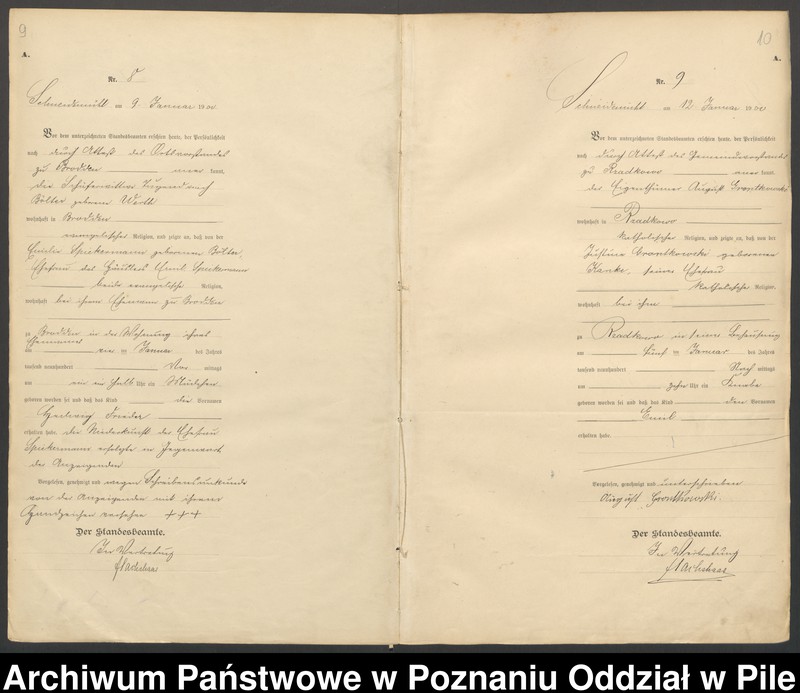 9
A.
Nr. 8
Schneidemühl am 9 Januar 19
Vor dem unterzeichneten Standesbeamten erschien heute, der Persönlichkeit
nach durch Attest des Ortsvorstandes
zu Brodden kannt,
die
Bölter geborene
wohnhaft in Brodden
evangelischer Religion, und zeigte an, daß von der
Emilie Spickermann geborenen Bölter,
Ehefrau des Emil Spickermann
beide evangelischer Religion,
wohnhaft bei ihrem Ehemann zu Brodden
zu Brodden in der Wohnung ihres
Ehemannes
am Januar des Jahres
tausend neunhundert Vor mittags
um ein halb Uhr ein Mädchen
geboren worden sei und daß das Kind die Vornamen
Hedwig Frieda
erhalten habe. Die Niederkunft der Ehefrau
Spickermann erfolgte in Gegenwart
der Anzeigenden
Vorgelesen, genehmigt und wegen Schreibensunkunde
von der Anzeigenden mit ihrem
Handzeichen versehen +++
Der Standesbeamte.
In Vertretung
10
A.
Nr. 9
Schneidemühl am 12 Januar 19
Vor dem unterzeichneten Standesbeamten erschien heute, der Persönlichkeit
nach durch Attest des Gemeindevorstands
zu Radkowo kannt,
der Eigenthümer August Grontkowski
wohnhaft in Radkowo
katholischer Religion, und zeigte an, daß von der
Justine Grontkowski geborenen
seiner Ehefrau
katholischer Religion,
wohnhaft bei ihm
zu Radkowo in seiner Behausung
am fünf ten Januar des Jahres
tausend neunhundert Nach mittags
um zehn Uhr ein Knabe
geboren worden sei und daß das Kind den Vornamen
Emil
erhalten habe.
Vorgelesen, genehmigt und unterschrieben
August Grontkowski.
Der Standesbeamte.
In Vertretung
Archiwum Państwowe w Poznaniu Oddział w Pile